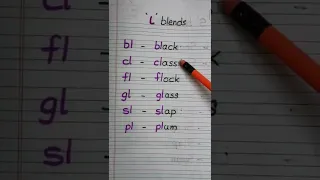 'L' blends
bl - black
cl - class
fl - flock
gl - glass
sl - slap
pl - plum